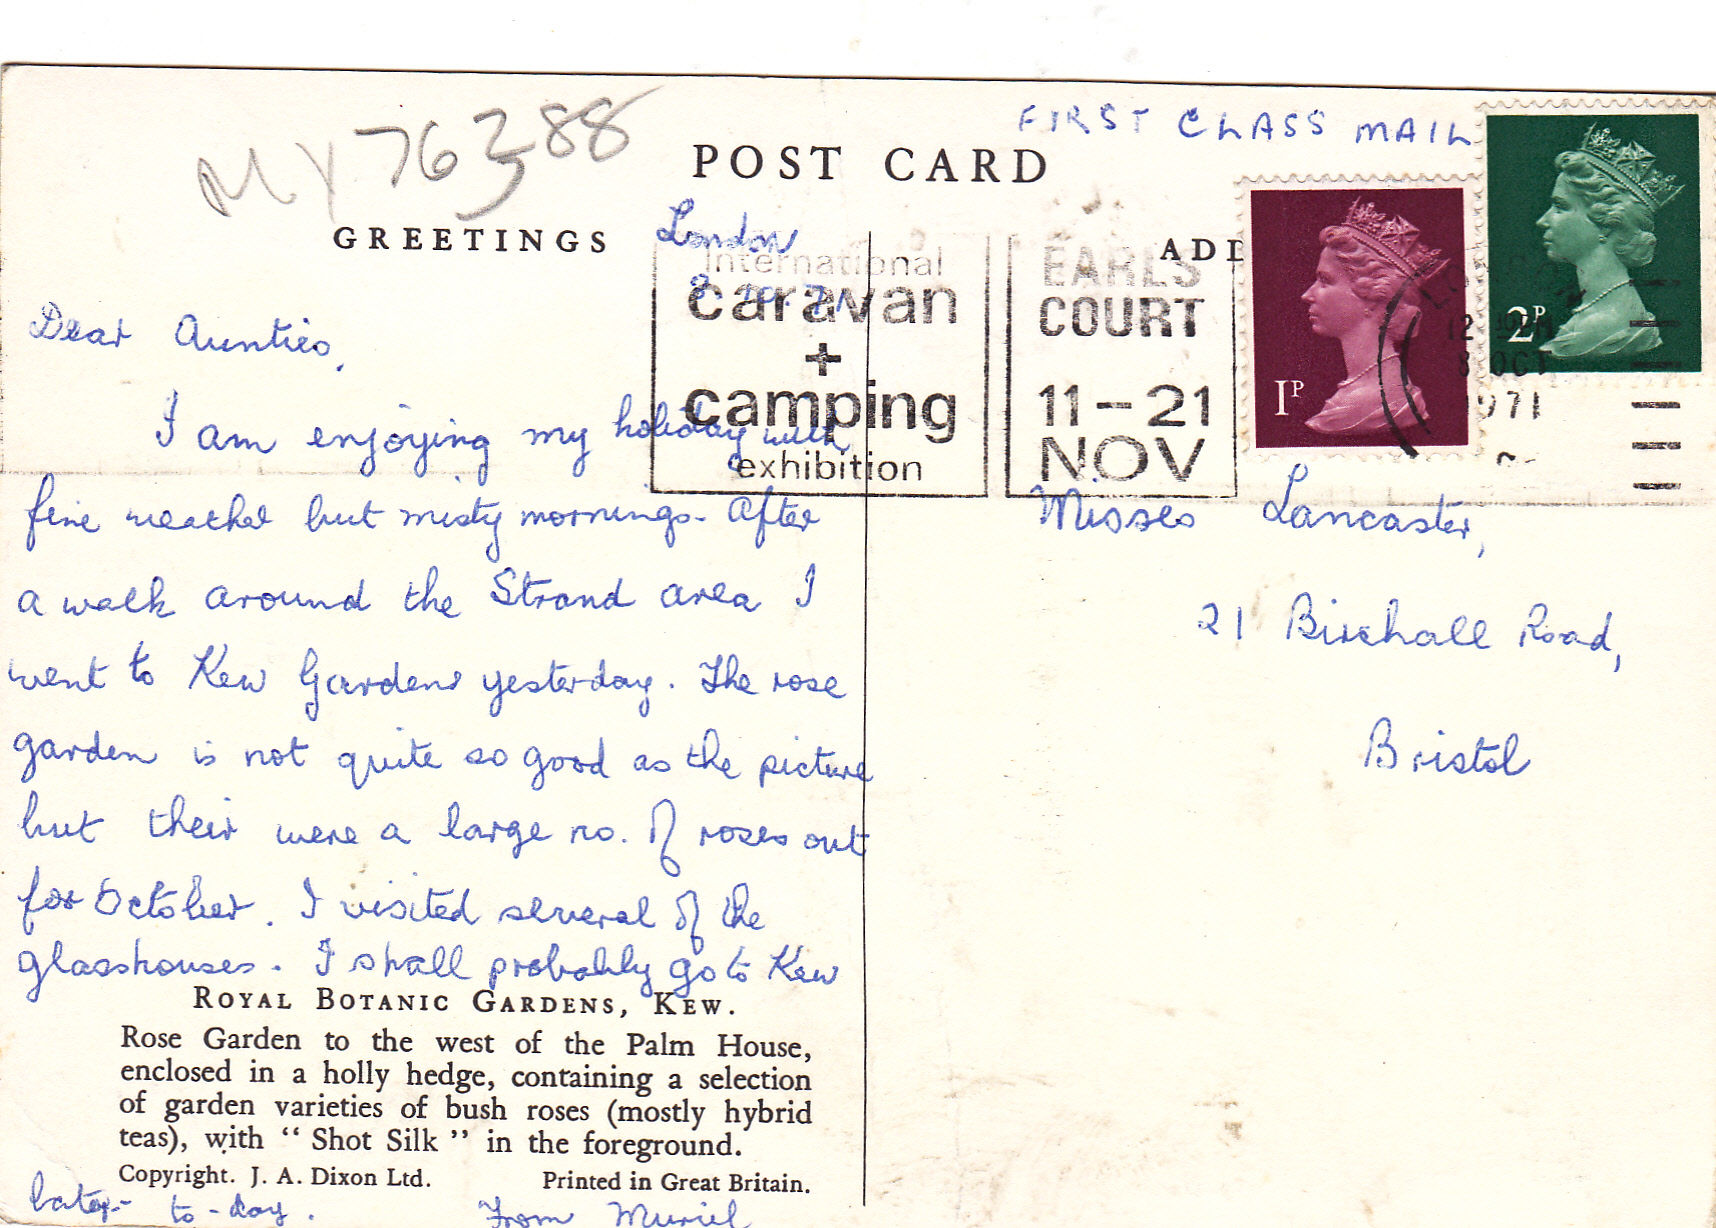 FIRST CLASS MAIL
MY 76388
POST CARD
GREETINGS
London
international
caravan
+
camping
exhibition
EARLS
COURT
11-21
NOV
ADD
1P
2P
12 30PM
8 OCT
1971
Dear Aunties,
I am enjoying my holiday with
fine weather but misty mornings. After
a walk around the Strand area I
went to Kew Gardens yesterday. The rose
garden is not quite so good as the picture
but their were a large no. of roses out
for October. I visited several of the
glasshouses. I shall probably go to Kew
later to-day.
From Muriel
Misses Lancaster,
21 Birchall Road,
Bristol
ROYAL BOTANIC GARDENS, KEW.
Rose Garden to the west of the Palm House,
enclosed in a holly hedge, containing a selection
of garden varieties of bush roses (mostly hybrid
teas), with “Shot Silk” in the foreground.
Copyright. J. A. Dixon Ltd. Printed in Great Britain.